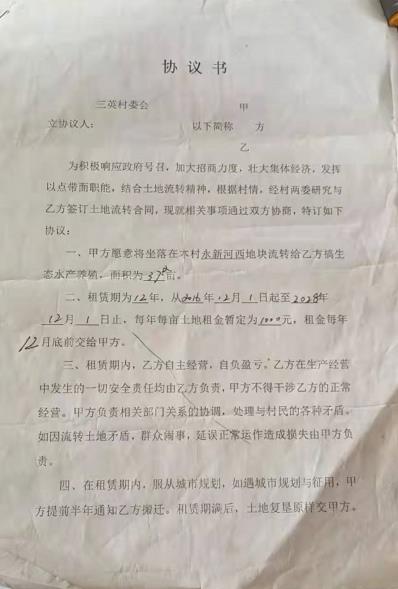 协 议 书
三英村委会 甲
立协议人： 以下简称 方
乙
为积极响应政府号召，加大招商力度，壮大集体经济，发挥
以点带面职能，结合土地流转精神，根据村情，经村两委研究与
乙方签订土地流转合同，现就相关事项通过双方协商，特订如下
协议：
一、甲方愿意将坐落在本村永新河西地块流转给乙方搞生
态水产养殖，面积为 亩。
二、租赁期为12年，从2016年12月1日起至2028年
12月1日止，每年每亩土地租金暂定为1000元，租金每年
12月底前交给甲方。
三、租赁期内，乙方自主经营，自负盈亏，乙方在生产经营
中发生的一切安全责任均由乙方负责，甲方不得干涉乙方的正常
经营。甲方负责相关部门关系的协调，处理与村民的各种矛盾。
如因流转土地矛盾，群众闹事，延误正常运作造成损失由甲方负
责。
四、在租赁期内，服从城市规划，如遇城市规划与征用，甲
方提前半年通知乙方搬迁。租赁期满后，土地复垦原样交甲方。